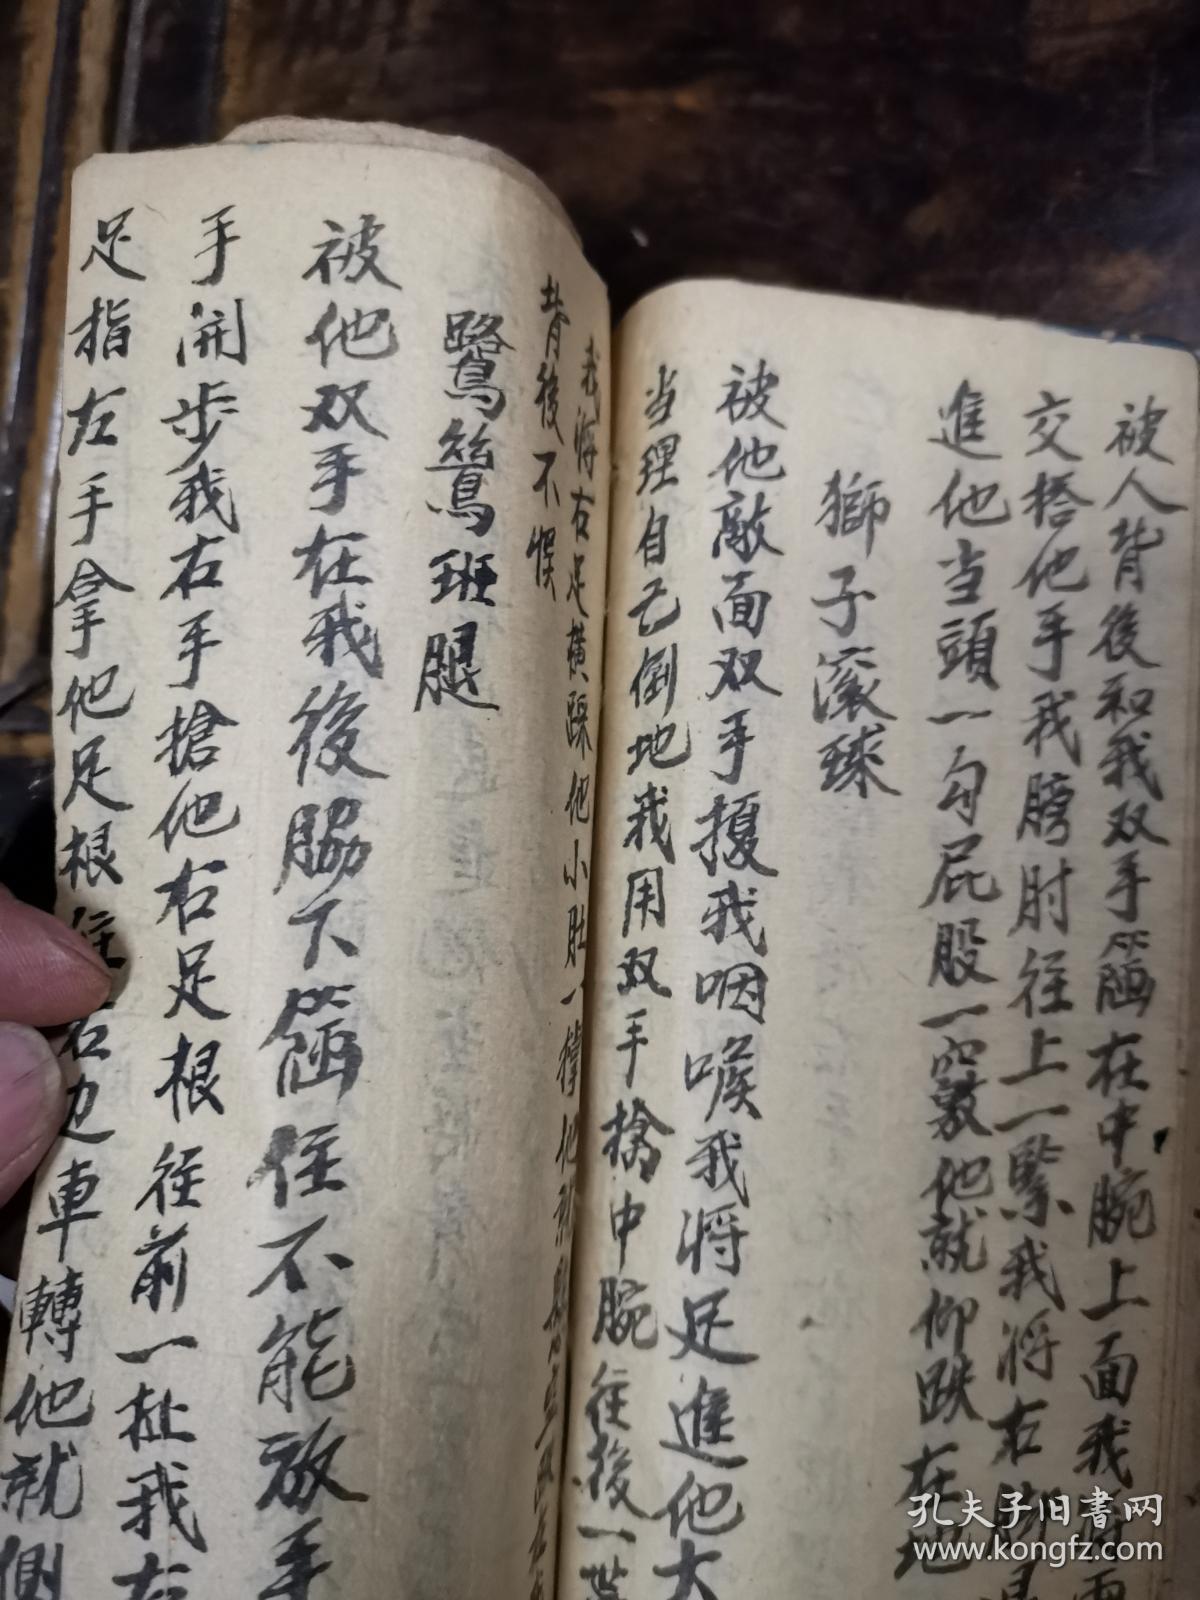 被人背後和我双手箍在中腕上面我
交搭他手我膀肘往上一緊我将右
進他当頭一勾屁股一竅他就仰跌在地
獅子滚球
被他敵面双手擾我咽喉我将足進他大
当理自己倒地我用双手擒中腕往後一
我将右足横踩他小肚一撑他
背後不悮
鷺鴛班腿
被他双手在我後脇下箍住不能放手
手開步我右手搶他右足根往前一扯我左
足指左手拿他足根往右边車轉他就側
孔夫子旧书网
www.kongfz.com